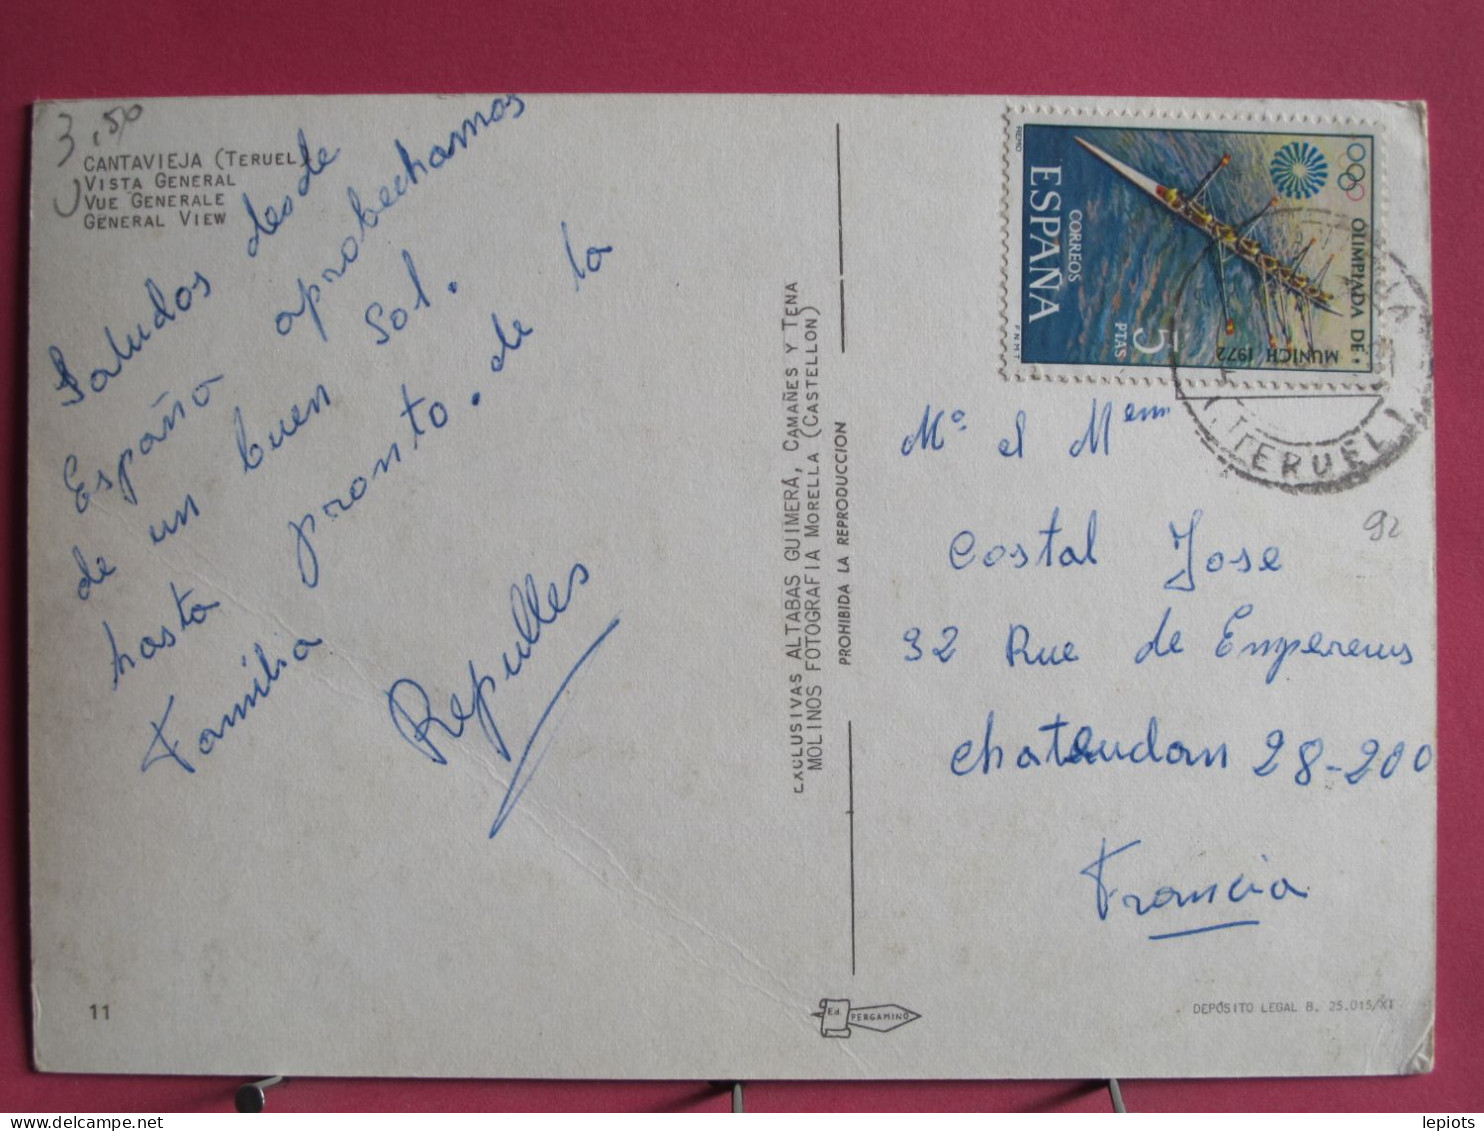 3,50
CANTAVIEJA (TERUEL)
VISTA GENERAL
VUE GENERALE
GENERAL VIEW
Saludos desde
España aprobechamos
de un buen sol.
hasta pronto. de la
Familia
Repulles
11
EXCLUSIVAS ALTABAS GUIMERÁ, CAMAÑES Y TENA
MOLINOS FOTOGRAFIA MORELLA (CASTELLON)
PROHIBIDA LA REPRODUCCION
Ed. PERGAMINO
OLIMPIADA DE
MUNICH 1972
CORREOS
ESPAÑA
5 PTAS
REMO
F.N.M.T.
(TERUEL)
Mº el Mem
92
Costal Jose
32 Rue de Empereurs
chateudan 28-200
Francia
DEPÓSITO LEGAL B. 25.015/XI
lepiots